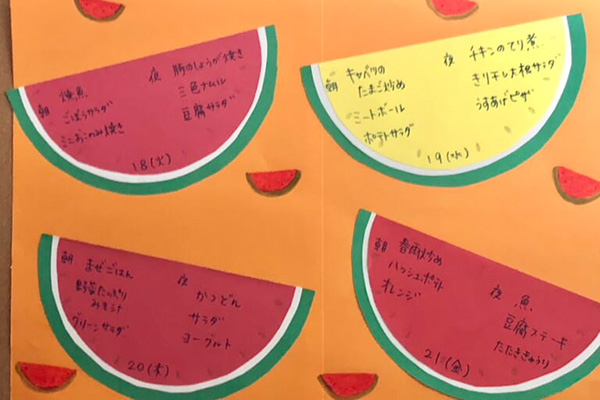 朝
焼魚
ごぼうサラダ
ミニおこのみ焼き
夜
豚のしょうが焼き
三色ナムル
豆腐サラダ
18(火)
朝
キャベツの
たまご炒め
ミートボール
ポテトサラダ
夜
チキンのてり煮
きり干し大根サラダ
うすあげピザ
19(水)
朝
まぜごはん
野菜たっぷり
みそ汁
グリーンサラダ
夜
かつどん
サラダ
ヨーグルト
20(木)
朝
春雨炒め
ハッシュポテト
オレンジ
夜
魚
豆腐ステーキ
たたききゅうり
21(金)